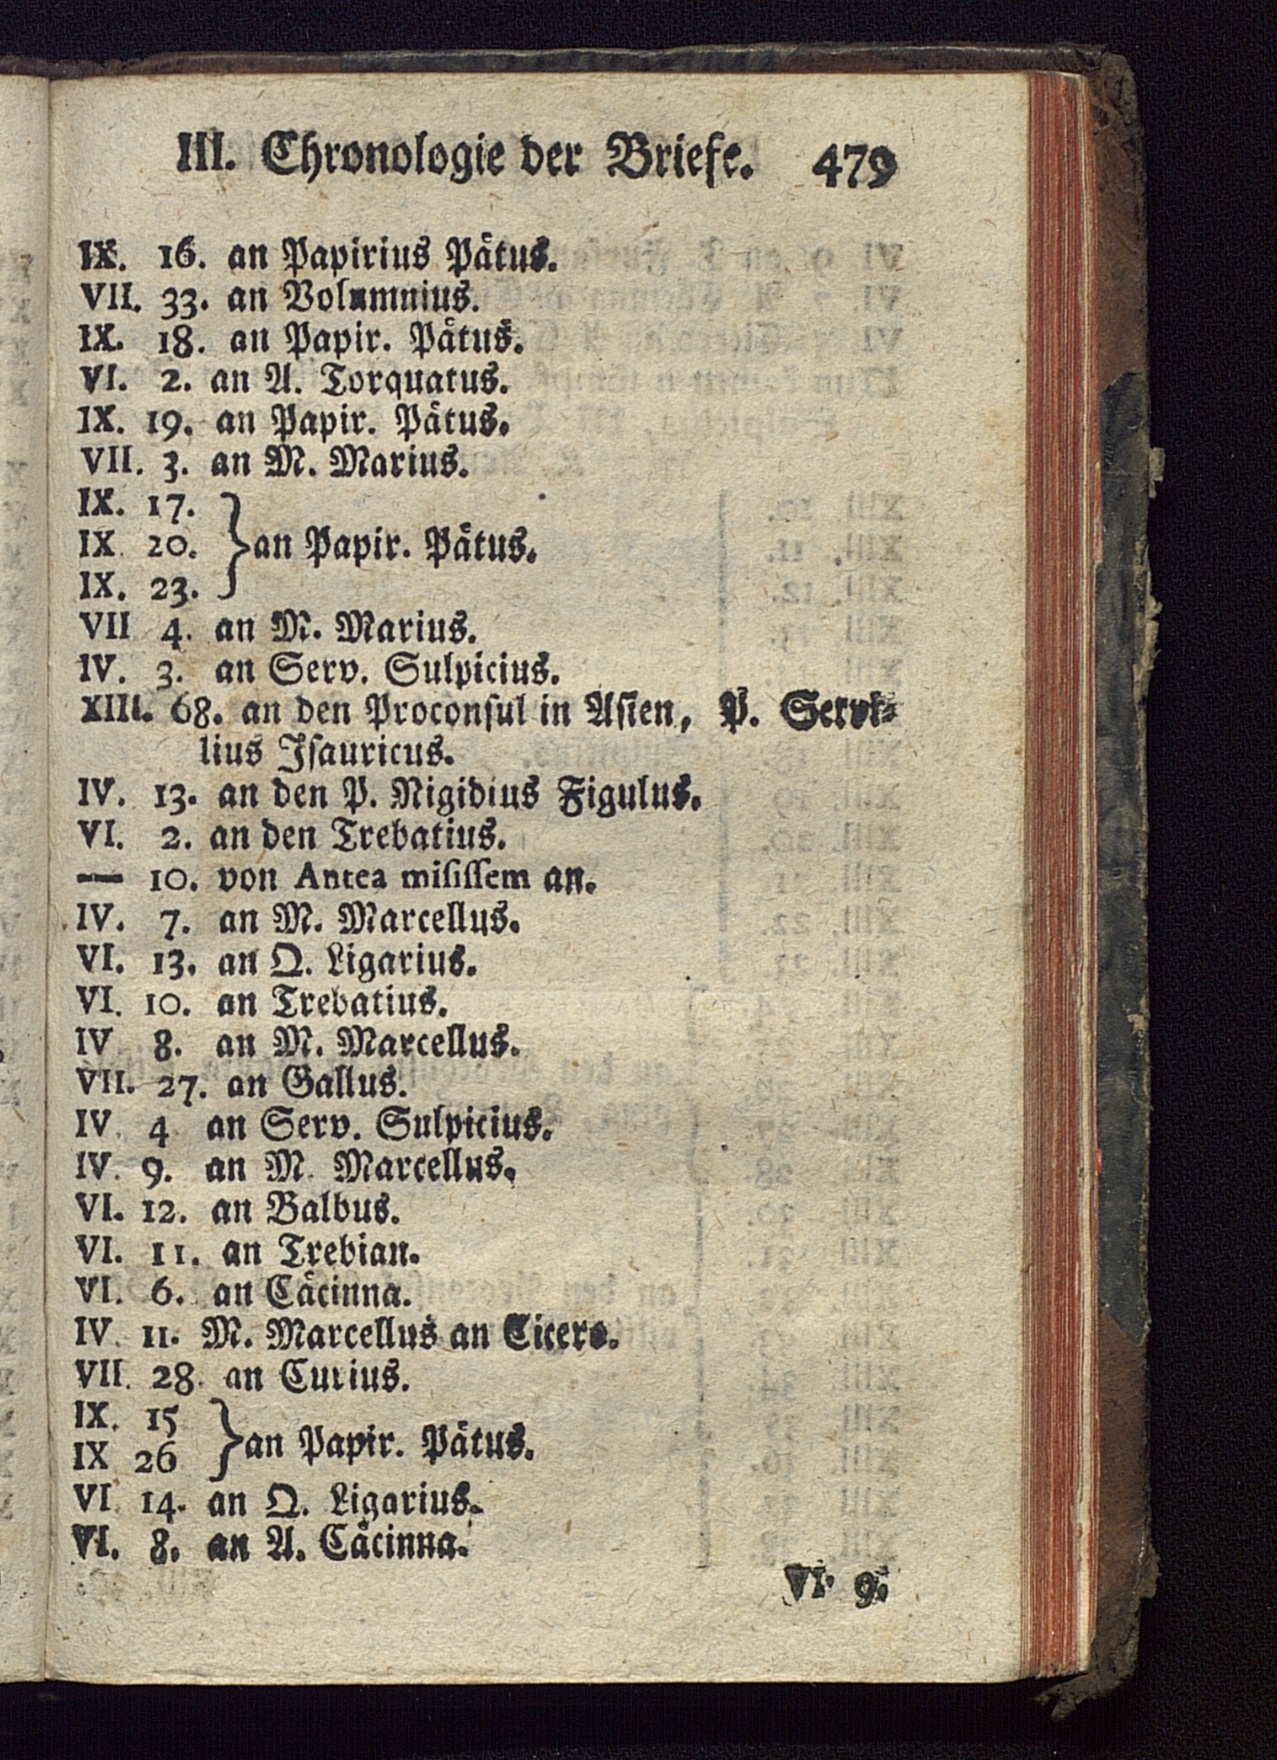 III. Chronologie der Briefe. 479
IX. 16. an Papirius Pätus.
VII. 33. an Volumnius.
IX. 18. an Papir. Pätus.
VI. 2. an A. Torquatus.
IX. 19. an Papir. Pätus.
VII. 3. an M. Marius.
IX. 17.
IX. 20. } an Papir. Pätus.
IX. 23.
VII 4. an M. Marius.
IV. 3. an Serv. Sulpicius.
XIII. 68. an den Proconsul in Asien, P. Servi-
lius Isauricus.
IV. 13. an den P. Nigidius Figulus.
VI. 2. an den Trebatius.
— 10. von Antea misissem an.
IV. 7. an M. Marcellus.
VI. 13. an Q. Ligarius.
VI. 10. an Trebatius.
IV 8. an M. Marcellus.
VII. 27. an Gallus.
IV. 4 an Serv. Sulpicius.
IV. 9. an M. Marcellus.
VI. 12. an Balbus.
VI. 11. an Trebian.
VI. 6. an Cäcinna.
IV. 11. M. Marcellus an Cicero.
VII. 28. an Curius.
IX. 15
IX 26 } an Papir. Pätus.
VI. 14. an Q. Ligarius.
VI. 8. an A. Cäcinna.
VI. 9.